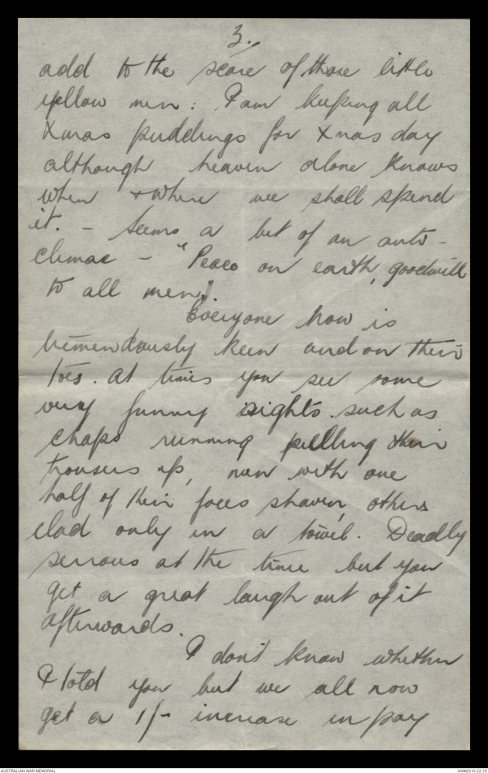 3.
add to the score of those little
yellow men. I am keeping all
Xmas puddings for Xmas day
although heaven alone knows
when & where we shall spend
it. - Seems a bit of an anti-
climac - "Peace on earth, goodwill
to all men".
Everyone now is
tremendously keen and on their
toes. At times you see some
very funny sights such as
chaps running pulling their
trousers up, men with one
half of their faces shaven, others
clad only in a towel. Deadly
serious at the time but you
get a great laugh out of it
afterwards.
I don't know whether
I told you but we all now
get a 1/- increase in pay
AUSTRALIAN WAR MEMORIAL